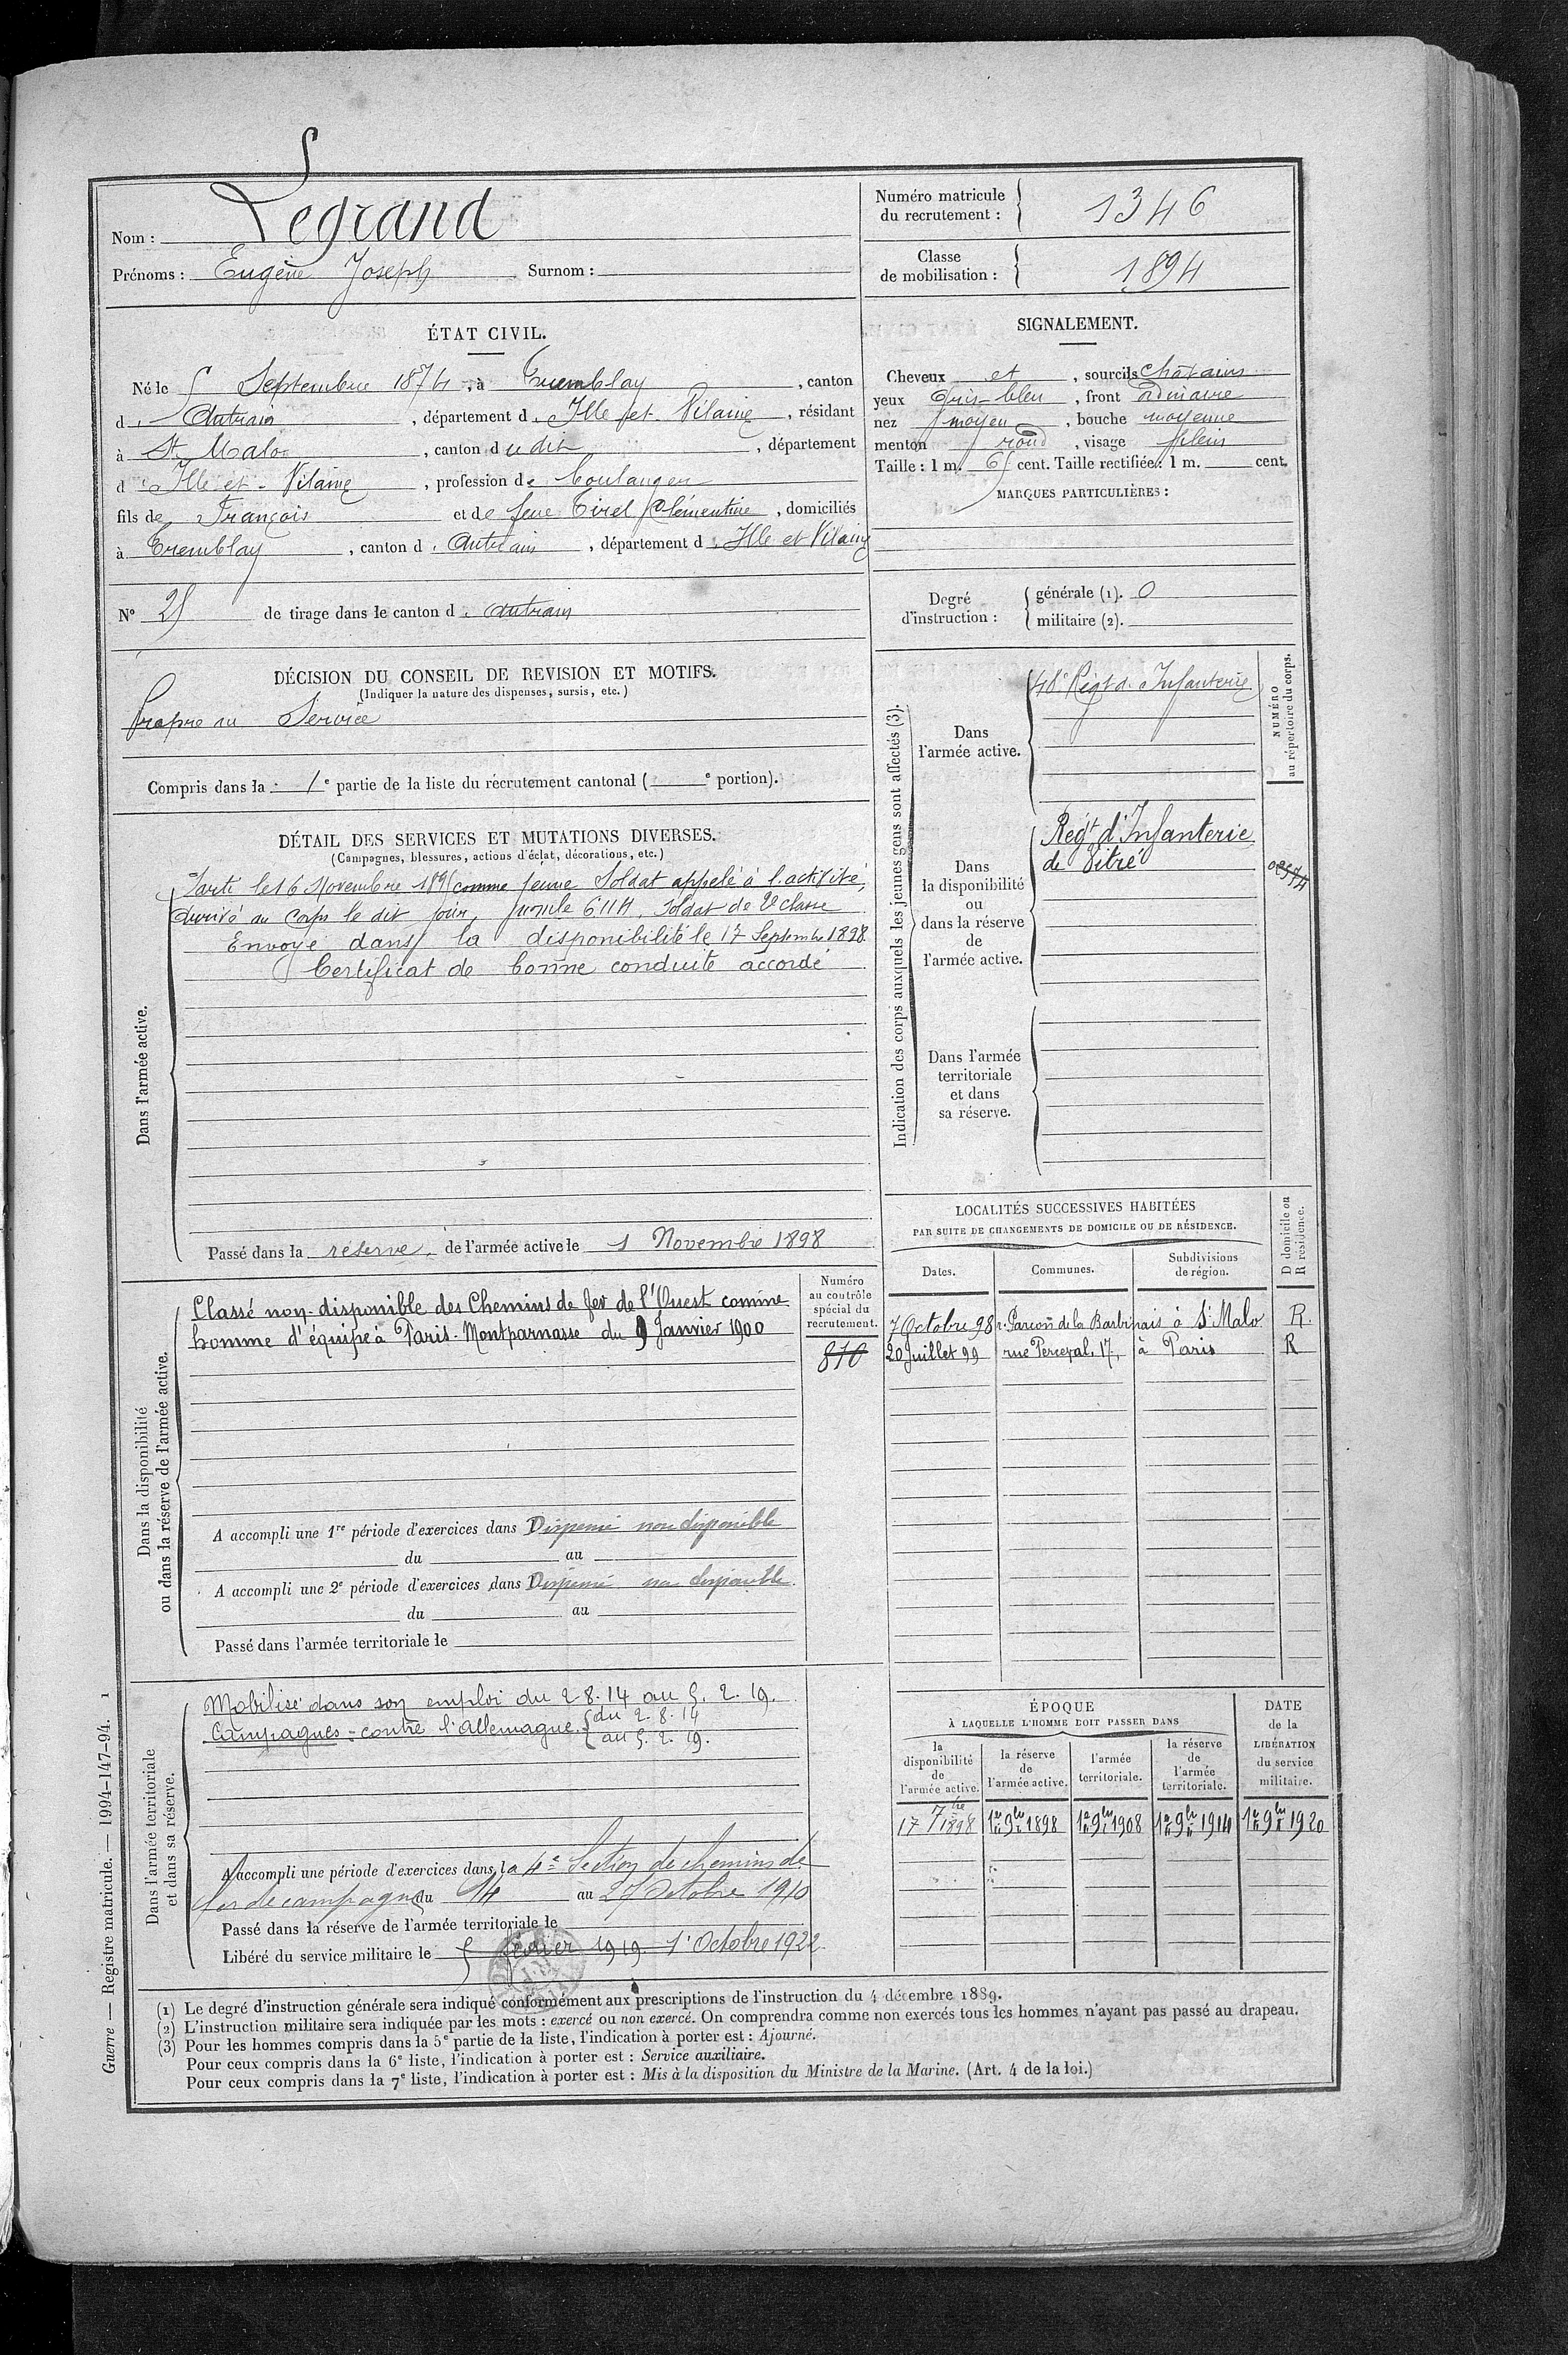 Nom : Legrand
Prénoms : Eugène Joseph Surnom :
Numéro matricule
du recrutement :
1346
Classe
de mobilisation :
1894
ÉTAT CIVIL.
Né le 5 Septembre 1874, à Tremblay, canton
d'Antrain, département d'Ille et Vilaine, résidant
à St Malo, canton dudit, département
d'Ille et Vilaine, profession de boulanger
fils de François et de feue Tirel Clémentine, domiciliés
à Tremblay, canton d'Antrain, département d'Ille et Vilaine
N° 25 de tirage dans le canton d'Antrain
SIGNALEMENT.
Cheveux et, sourcils châtains
yeux Gris-bleu, front ordinaire
nez moyen, bouche moyenne
menton rond, visage plein
Taille : 1 m. 65 cent. Taille rectifiée : 1 m. cent.
MARQUES PARTICULIÈRES :
Degré
d'instruction :
générale (1). 0
militaire (2).
DÉCISION DU CONSEIL DE REVISION ET MOTIFS.
(Indiquer la nature des dispenses, sursis, etc.)
Propre au Service
Compris dans la 1e partie de la liste du recrutement cantonal ( e portion).
DÉTAIL DES SERVICES ET MUTATIONS DIVERSES.
(Campagnes, blessures, actions d'éclat, décorations, etc.)
Dans l'armée active.
Parti le 16 Novembre 1895 comme jeune Soldat appelé à l'activité,
Arrivé au Corps le dit jour, nomle 6114, Soldat de 2e classe
Envoyé dans la disponibilité le 17 Septembre 1898
Certificat de bonne conduite accordé
Passé dans la réserve de l'armée active le 1 Novembre 1898
Indication des corps auxquels les jeunes gens sont affectés (3).
NUMÉRO
au répertoire du corps.
Dans
l'armée active.
48e Régt d'Infanterie
Dans
la disponibilité
ou
dans la réserve
de
l'armée active.
Régt d'Infanterie
de Vitré
Dans l'armée
territoriale
et dans
sa réserve.
LOCALITÉS SUCCESSIVES HABITÉES
PAR SUITE DE CHANGEMENTS DE DOMICILE OU DE RÉSIDENCE.
D domicile ou
R résidence.
Dates. Communes. Subdivisions
de région.
7 Octobre 98 de la Barbinais à St Malo R.
20 Juillet 99 rue Perceval, 17, à Paris R
Dans la disponibilité
ou dans la réserve de l'armée active.
Numéro
au contrôle
spécial du
recrutement.
810
Classé non-disponible des Chemins de fer de l'Ouest comme
homme d'équipe à Paris-Montparnasse du 9 Janvier 1900
A accompli une 1re période d'exercices dans Dispensé non disponible
du au
A accompli une 2e période d'exercices dans Dispensé non disponible
du au
Passé dans l'armée territoriale le
Dans l'armée territoriale
et dans sa réserve.
Mobilisé dans son emploi du 2.8.14 au 5.2.19.
Campagnes : contre l'allemagne. du 2.8.14
au 5.2.19.
A accompli une période d'exercices dans la 4e Section de chemins de
fer de campagne du 14 au 27 Octobre 1910
Passé dans la réserve de l'armée territoriale le
Libéré du service militaire le 5 février 1919. 1er Octobre 1922
ÉPOQUE
À LAQUELLE L'HOMME DOIT PASSER DANS
DATE
de la
LIBÉRATION
du service
militaire.
la
disponibilité
de
l'armée active.
la réserve
de
l'armée active.
l'armée
territoriale.
la réserve
de
l'armée
territoriale.
17 7bre 1898 1er 9bre 1898 1er 9bre 1908 1er 9bre 1914 1er 9bre 1920
(1) Le degré d'instruction générale sera indiqué conformément aux prescriptions de l'instruction du 4 décembre 1889.
(2) L'instruction militaire sera indiquée par les mots : exercé ou non exercé. On comprendra comme non exercés tous les hommes n'ayant pas passé au drapeau.
(3) Pour les hommes compris dans la 5e partie de la liste, l'indication à porter est : Ajourné.
Pour ceux compris dans la 6e liste, l'indication à porter est : Service auxiliaire.
Pour ceux compris dans la 7e liste, l'indication à porter est : Mis à la disposition du Ministre de la Marine. (Art. 4 de la loi.)
Guerre — Registre matricule. — 1994-147-94. 1